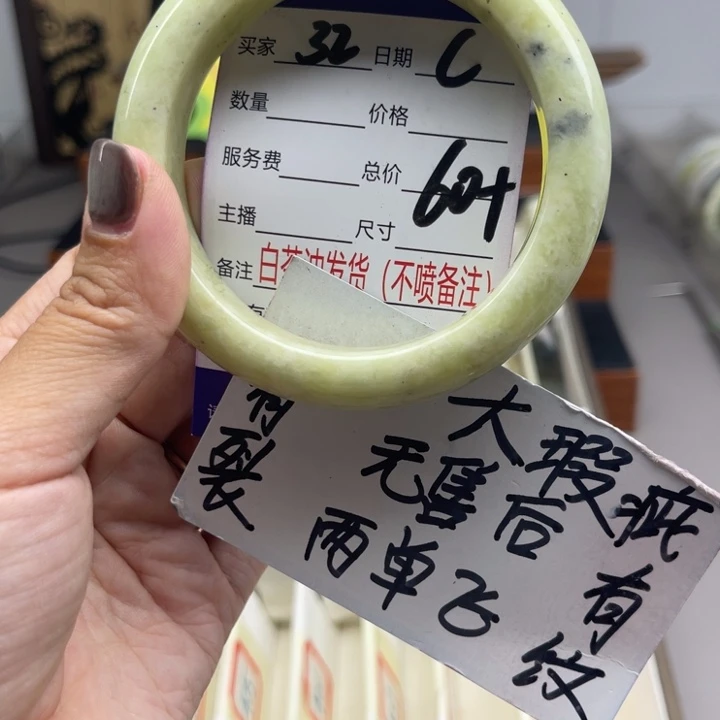 买家 32 日期 C
数量 价格
服务费 总价
60+
主播 尺寸
备注 白茶冲发货（不喷备注）
大瑕疵有纹
无售后
有裂
两单飞